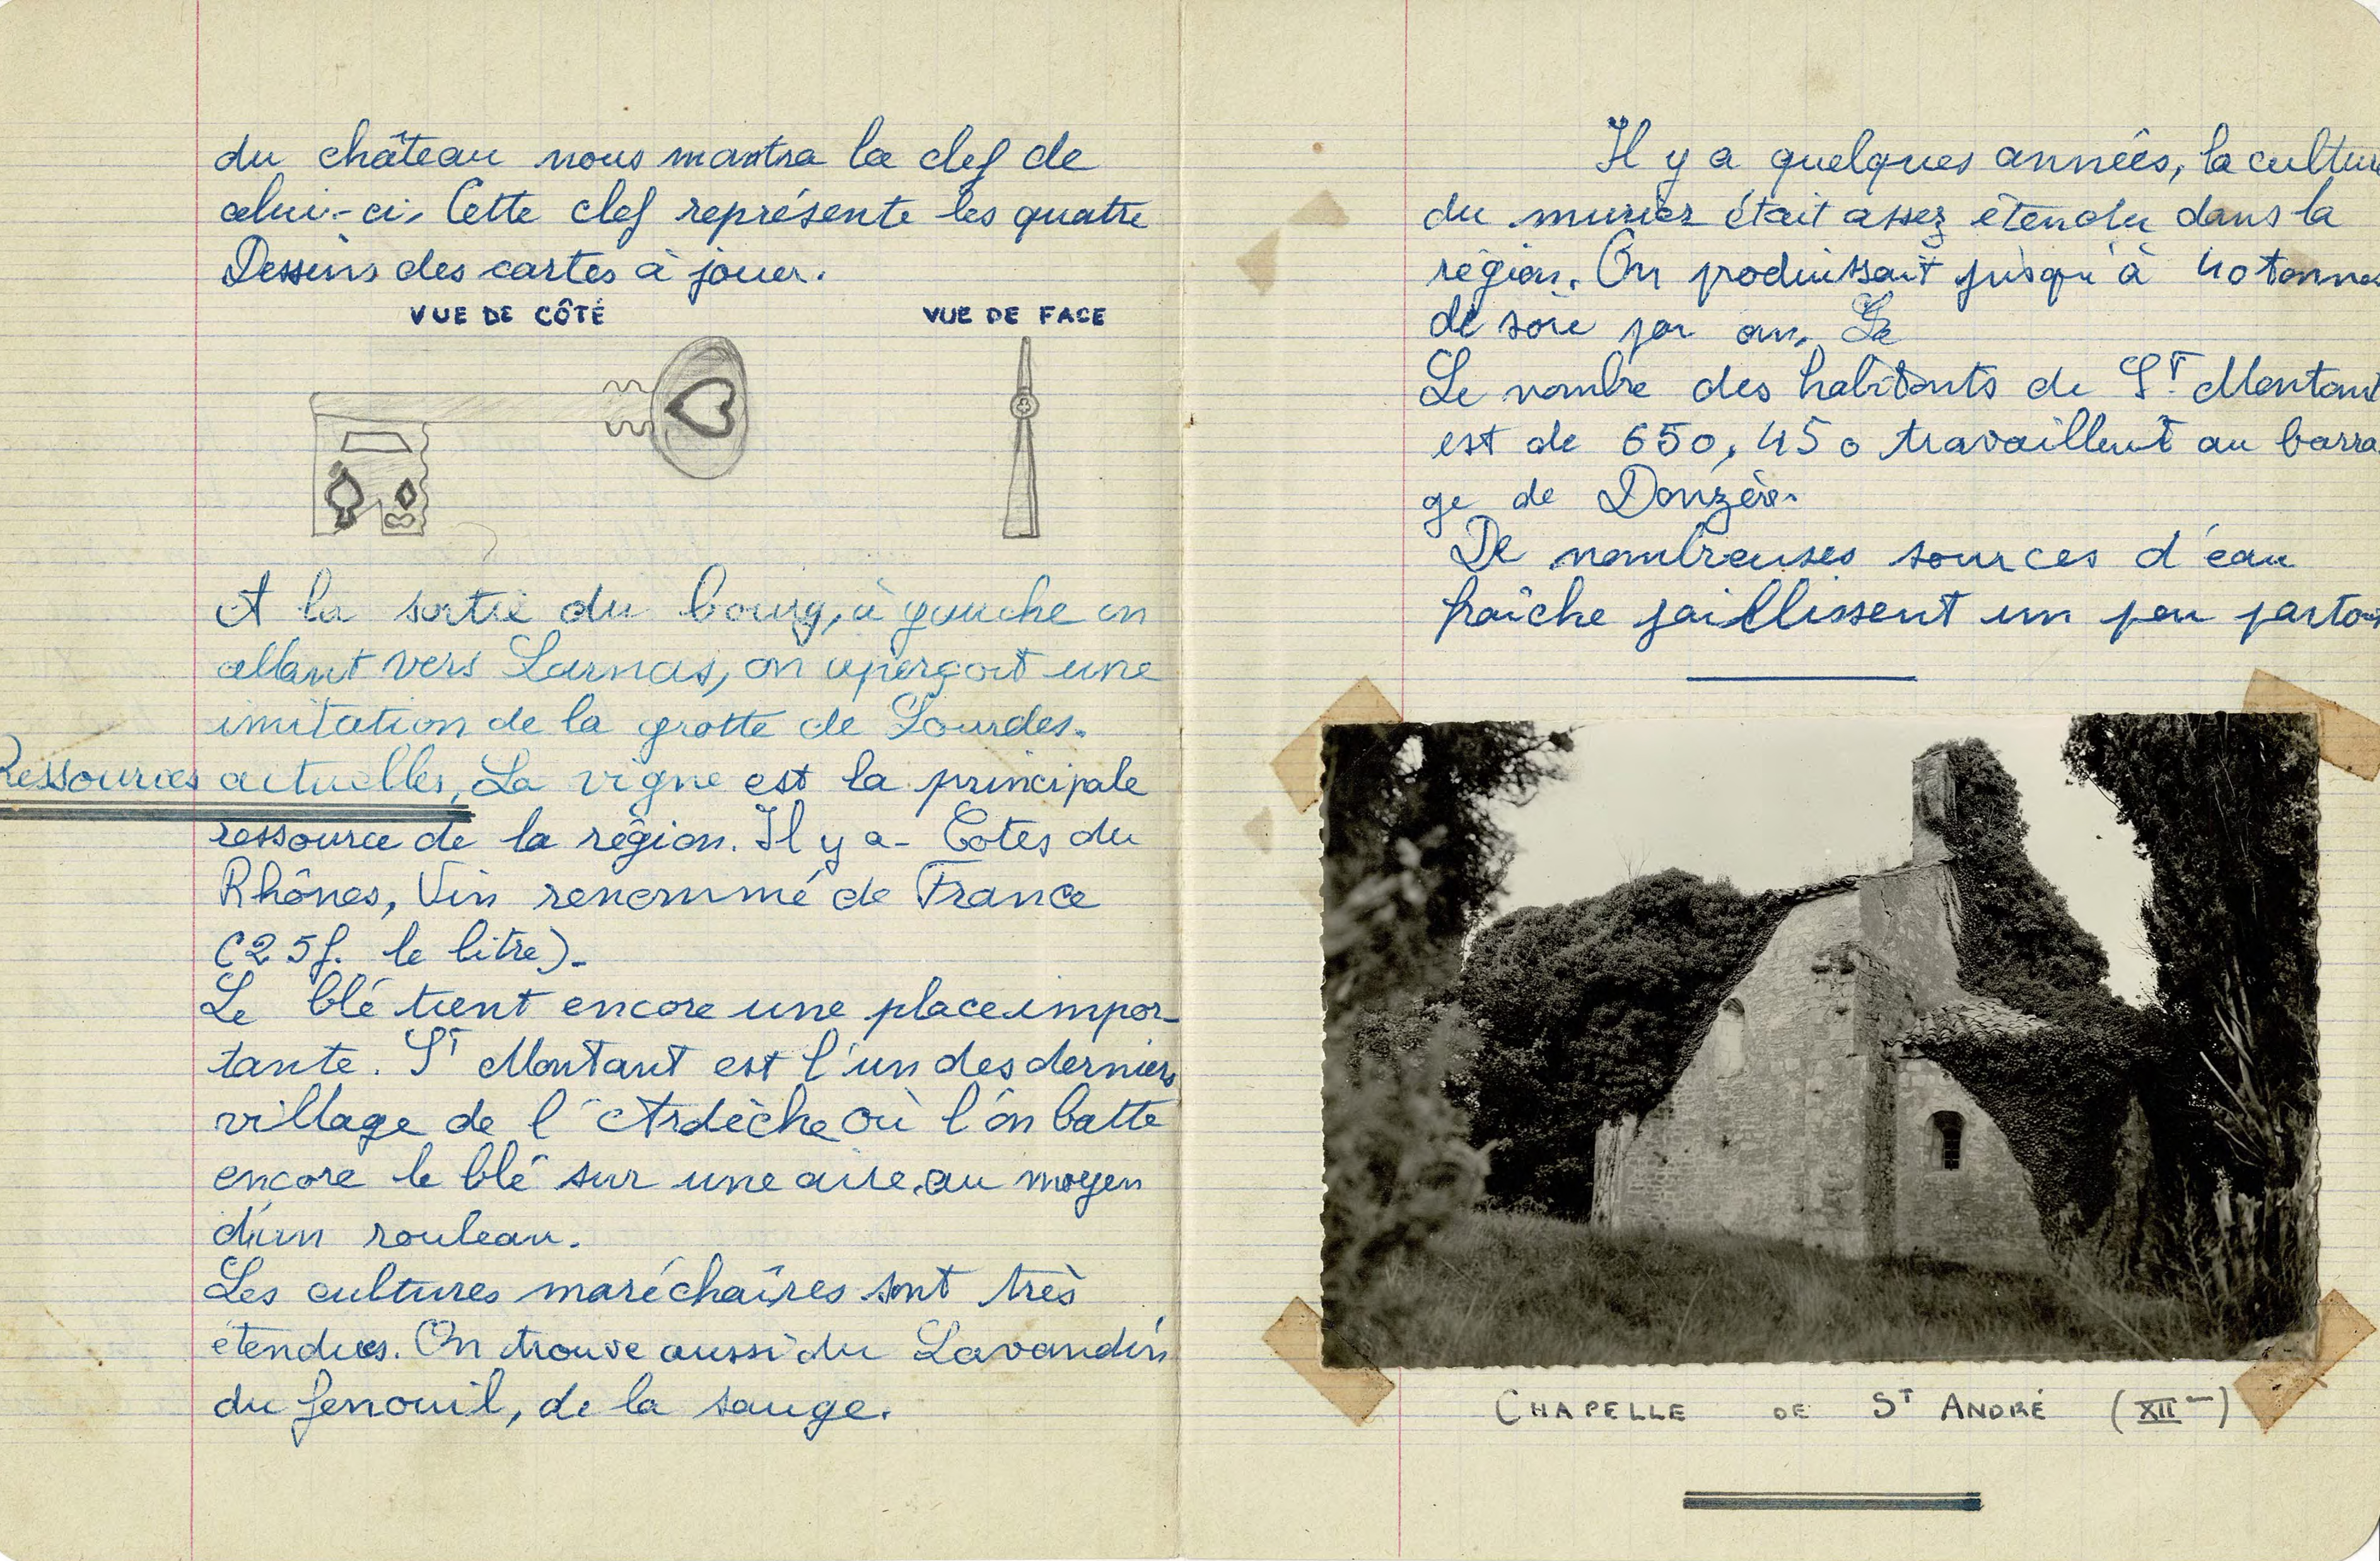 du château nous montra la clef de
celui-ci. Cette clef représente les quatre
Dessins des cartes à jouer.
VUE DE CÔTÉ
VUE DE FACE
A la sortie du bourg, à gauche en
allant vers Larnas, on aperçoit une
imitation de la grotte de Lourdes.
Ressources actuelles, La vigne est la principale
ressource de la région. Il y a - Cotes du
Rhônes, Vin renommé de France
(25f. le litre).
Le blé tient encore une place impor-
tante. ST Montant est l'un des derniers
village de l'Ardèche où l'on batte
encore le blé sur une aire, au moyen
d'un rouleau.
Les cultures maréchaîres sont très
étendues. On trouve aussi du Lavandin
du fenouil, de la sauge.
Il y a quelques années, la culture
du murier était assez étendu dans la
région. On produissait jusqu'à 40 tonnes
de soie par an. Le
Le nombre des habitants de ST Montant
est de 650, 450 travaillent au barra
ge de Donzère.
De nombreuses sources d'eau
fraîche jaillissent un peu partout
CHAPELLE DE ST ANDRÉ (XII)